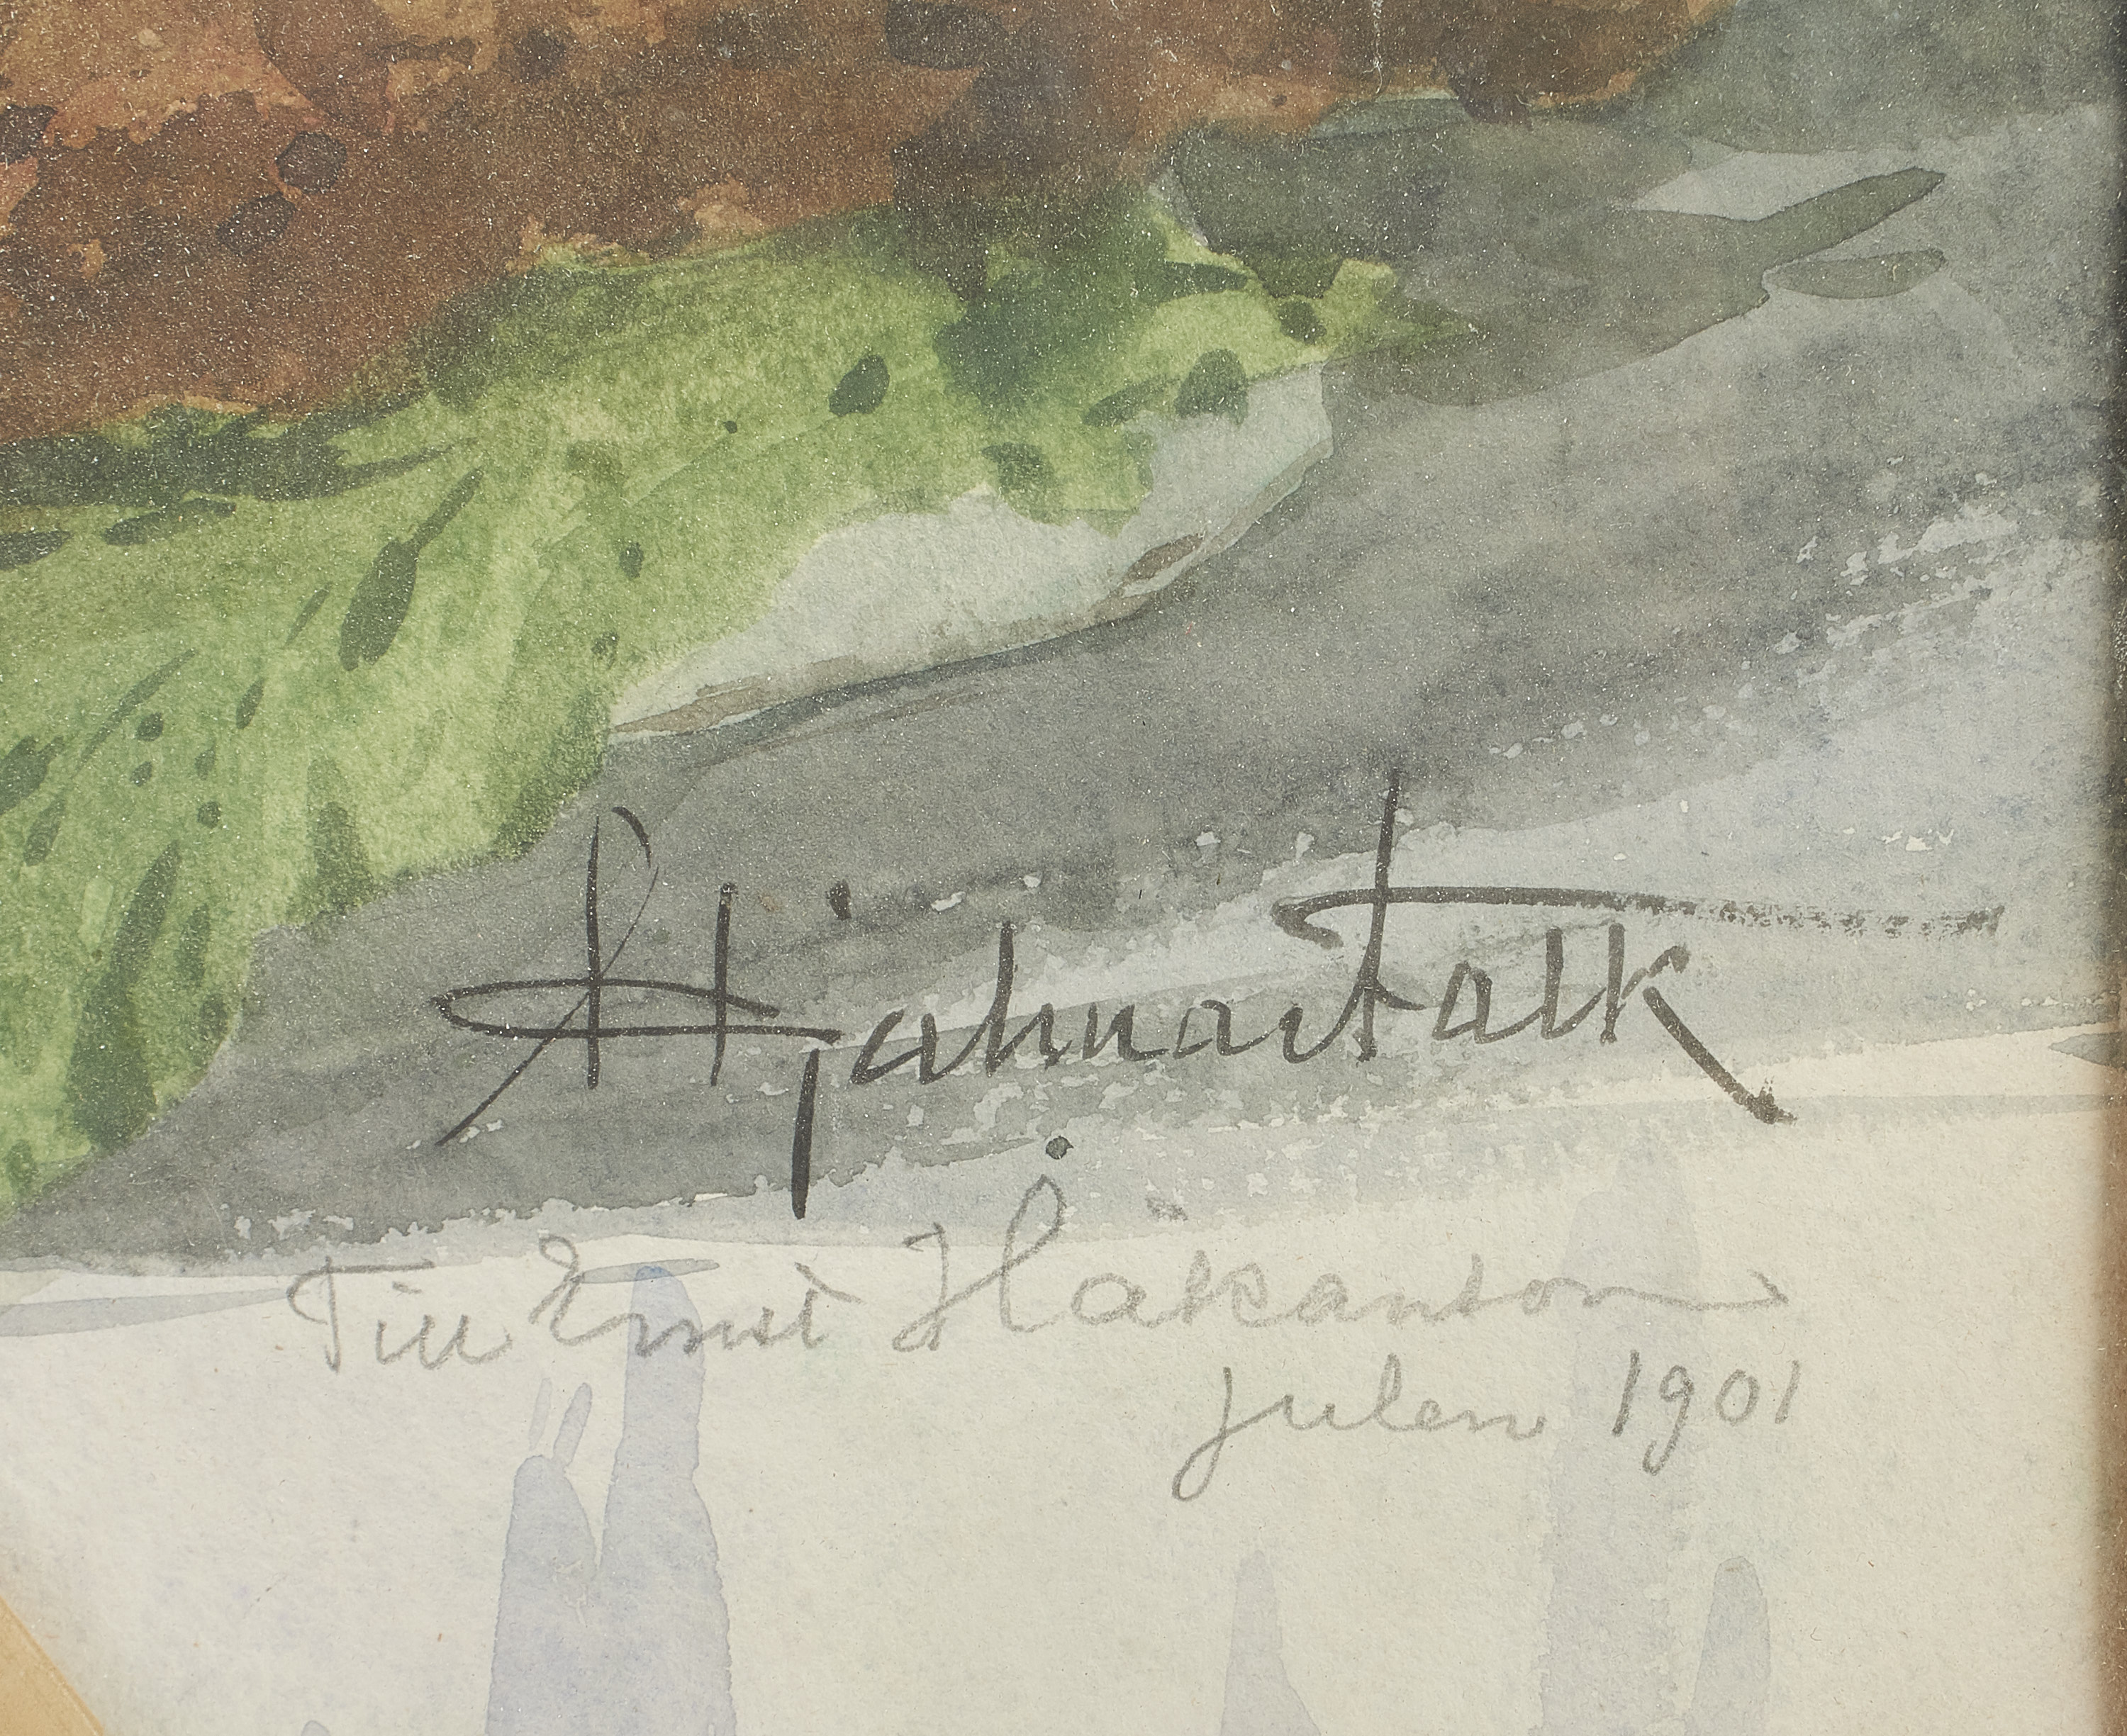 Hjalmar Falk
Till Ernst Håkanson
julen 1901